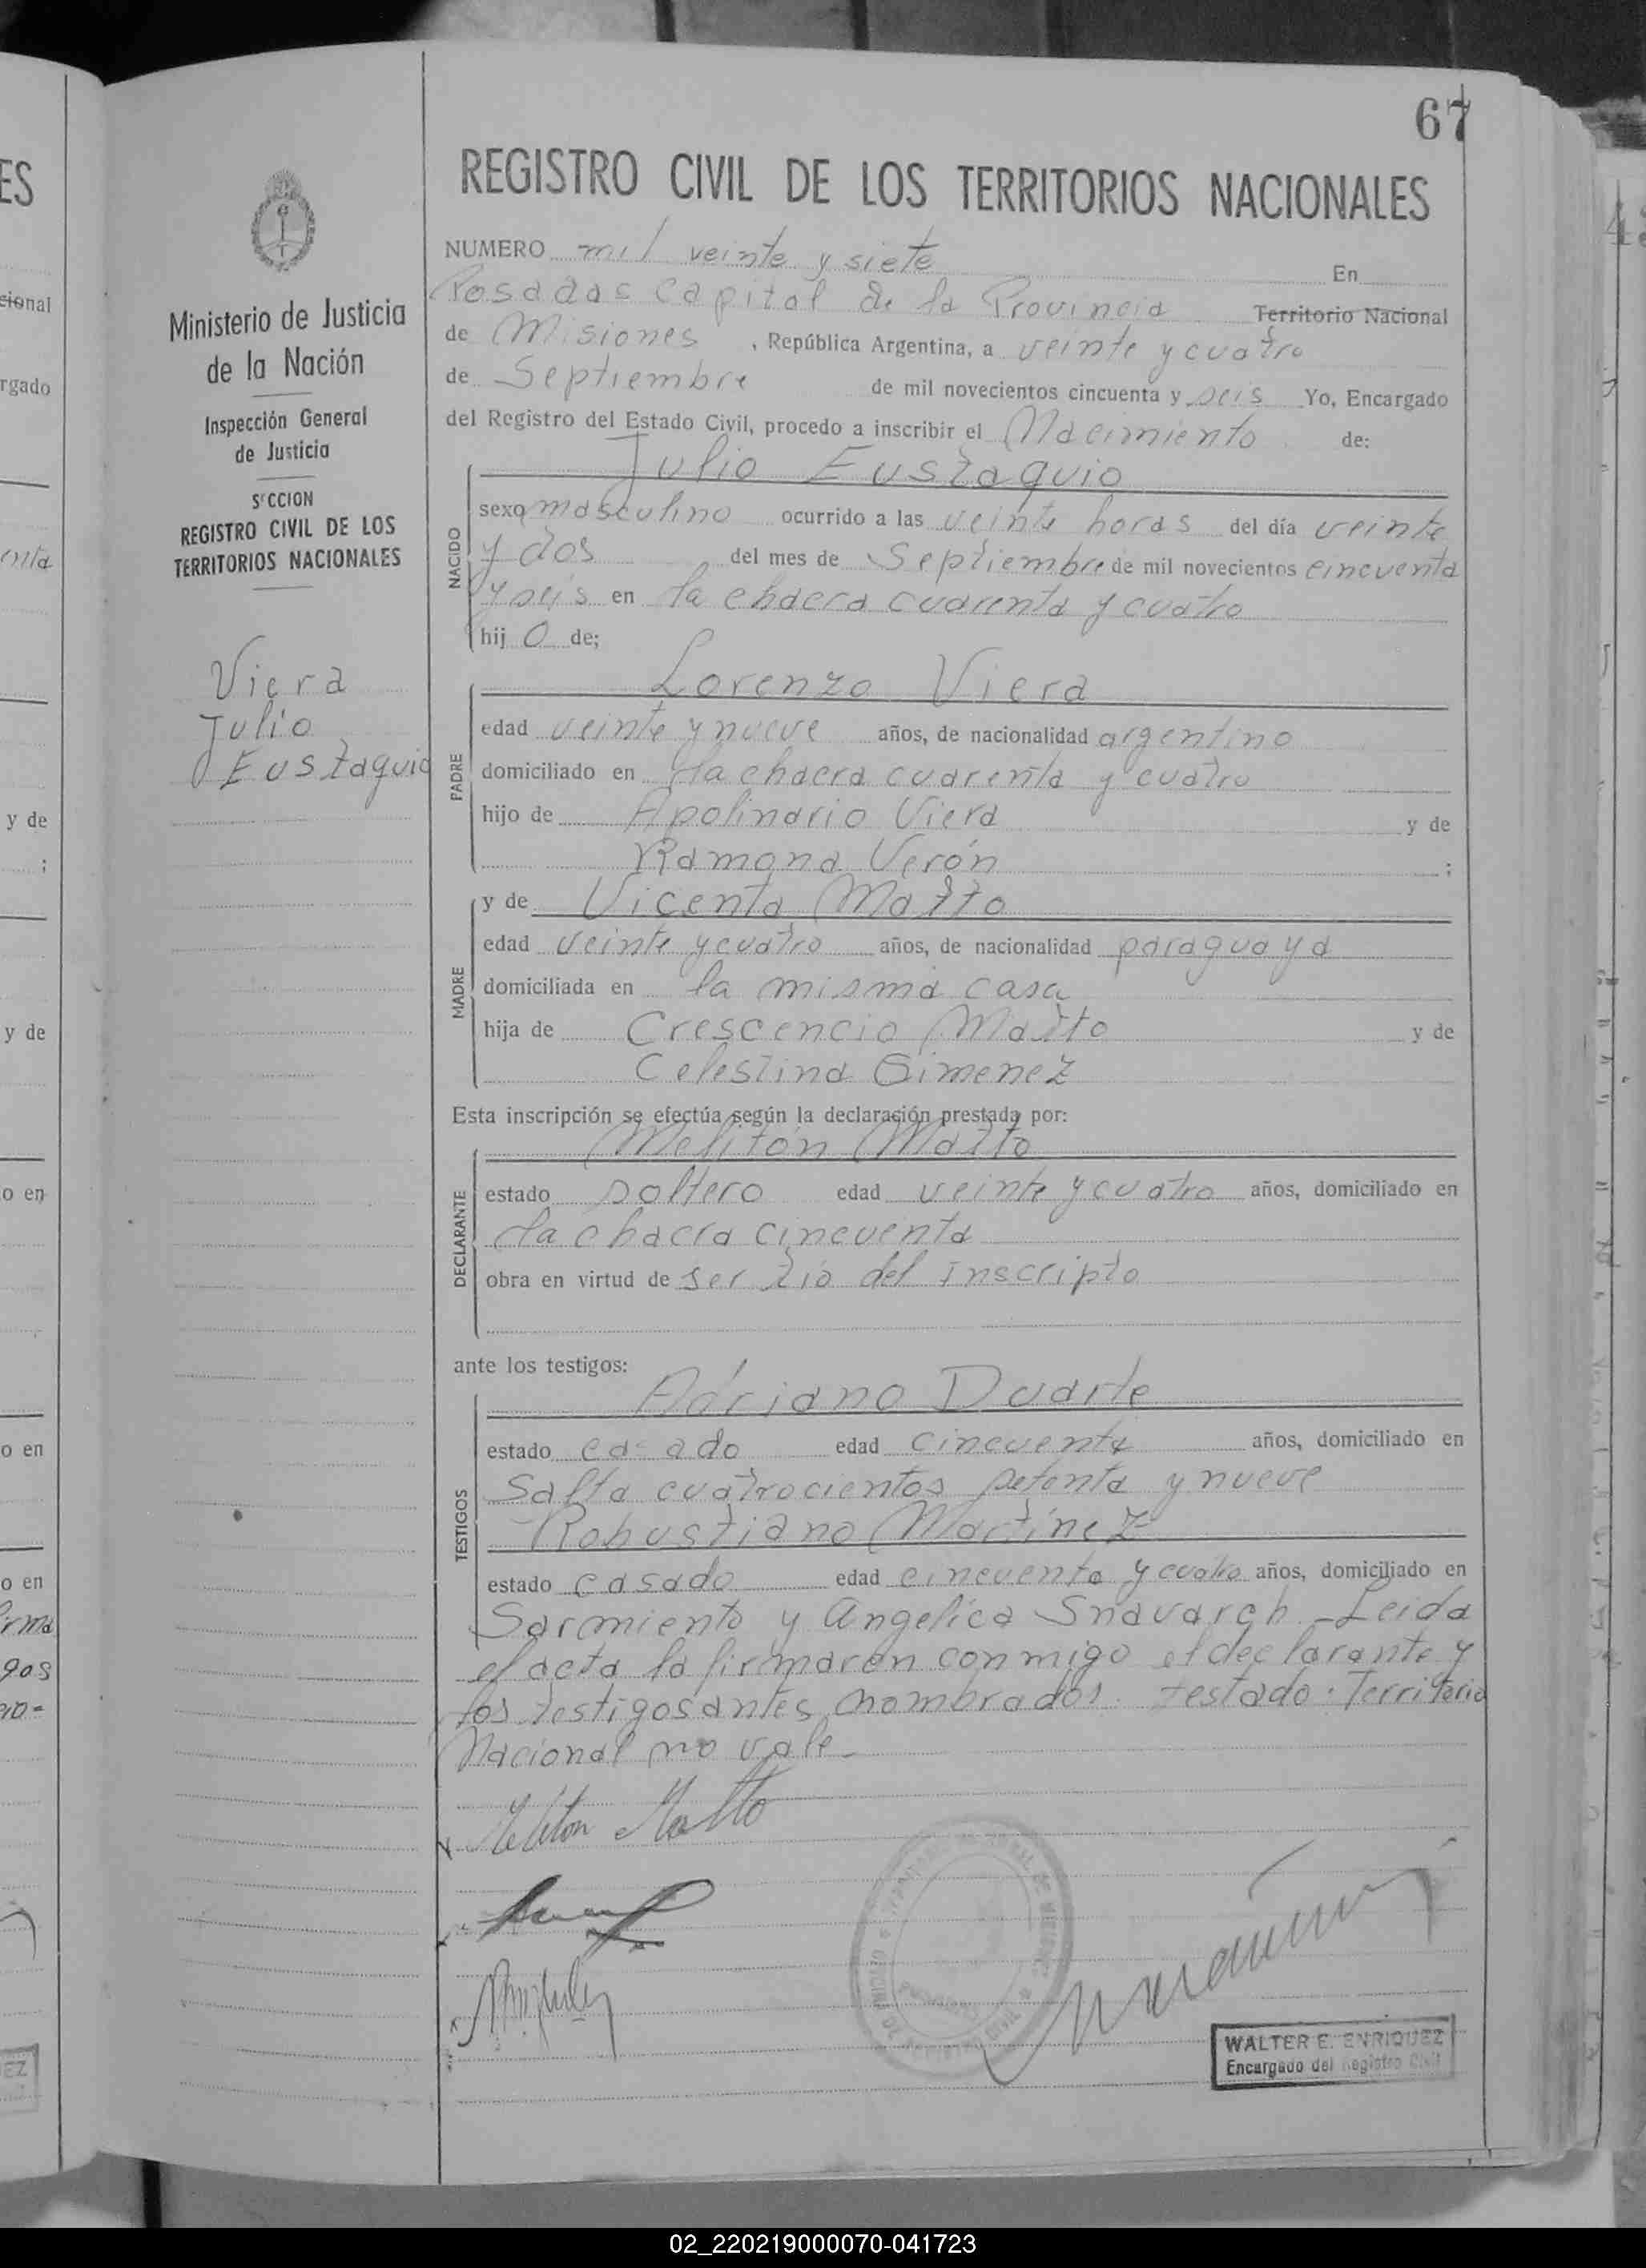 67
REGISTRO CIVIL DE LOS TERRITORIOS NACIONALES
Ministerio de Justicia
de la Nación
Inspección General
de Justicia
SECCION
REGISTRO CIVIL DE LOS
TERRITORIOS NACIONALES
Viera
Julio
Eustaquio
NUMERO mil veinte y siete En
Posadas Capital de la Provincia Territorio Nacional
de Misiones , República Argentina, a veinte y cuatro
de Septiembre de mil novecientos cincuenta y seis Yo, Encargado
del Registro del Estado Civil, procedo a inscribir el Nacimiento de:
Julio Eustaquio
NACIDO
sexo masculino ocurrido a las veinte horas del día veinte
y dos del mes de Septiembre de mil novecientos cincuenta
y seis en la chacra cuarenta y cuatro
hij o de;
Lorenzo Viera
PADRE
edad veinte y nueve años, de nacionalidad argentino
domiciliado en la chacra cuarenta y cuatro
hijo de Apolinario Viera y de
Ramona Verón ;
y de Vicenta Matto
MADRE
edad veinte y cuatro años, de nacionalidad paraguaya
domiciliada en la misma casa
hija de Crescencio Matto y de
Celestina Gimenez
Esta inscripción se efectúa según la declaración prestada por:
Melitón Matto
DECLARANTE
estado soltero edad veinte y cuatro años, domiciliado en
la chacra cincuenta
obra en virtud de ser tío del inscripto
ante los testigos:
Adriano Duarte
TESTIGOS
estado casado edad cincuenta años, domiciliado en
Salta cuatrocientos setenta y nueve
Robustiano Martínez
estado casado edad cincuenta y cuatro años, domiciliado en
Sarmiento y Angelica Leida
el acta la firmaron conmigo el declarante y
los testigos antes nombrados. testado: Territorio
Nacional no vale
Meliton Matto
WALTER E. ENRIQUEZ
Encargado del Registro Civil
02_220219000070-041723